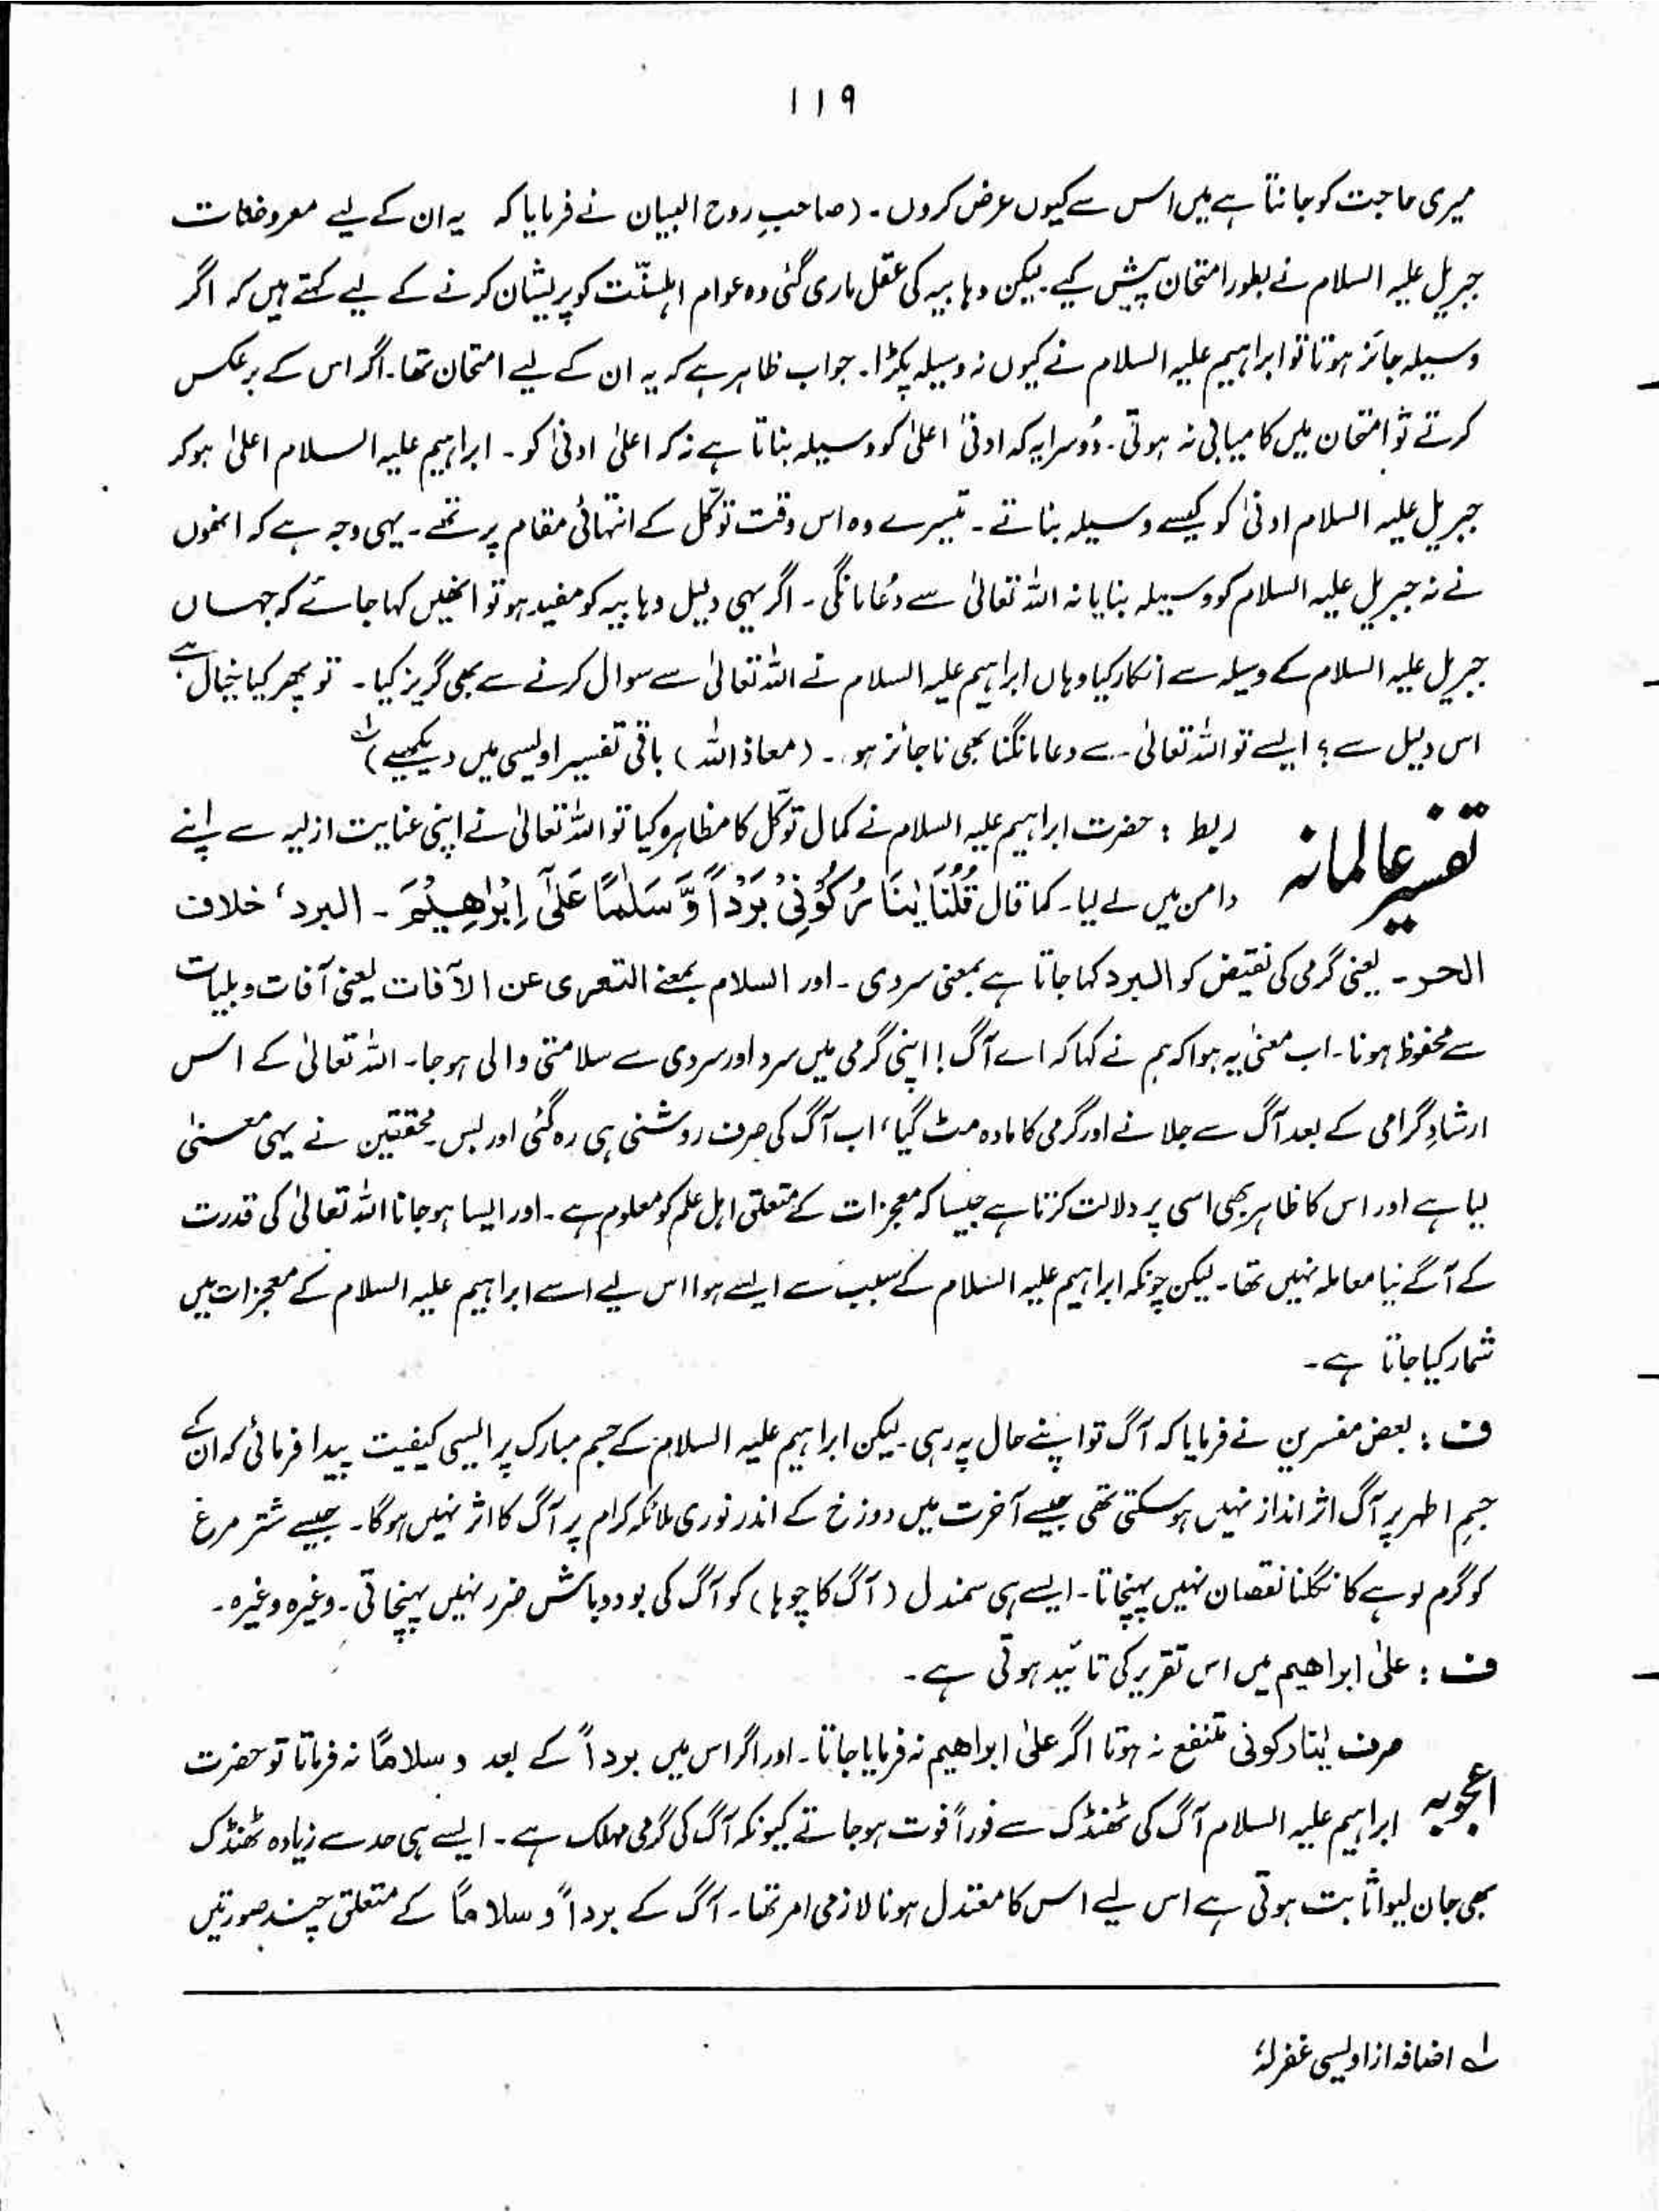 ۱۱۹
میری حاجت کو جانتا ہے میں اس سے کیوں عرض کروں۔ (صاحبِ روح البیان نے فرمایا کہ یہ ان کے لیے معروضات
جبریل علیہ السلام نے بطور امتحان پیش کیے۔ لیکن وہابیہ کی عقل ماری گئی وہ عوام اہلسنّت کو پریشان کرنے کے لیے کہتے ہیں کہ اگر
وسیلہ جائز ہوتا تو ابراہیم علیہ السلام نے کیوں نہ وسیلہ پکڑا۔ جواب ظاہر ہے کہ یہ ان کے لیے امتحان تھا۔ اگر اس کے برعکس
کرتے تو امتحان میں کامیابی نہ ہوتی۔ دُوسرا یہ کہ ادنیٰ اعلیٰ کو وسیلہ بناتا ہے نہ کہ اعلیٰ ادنیٰ کو۔ ابراہیم علیہ السلام اعلیٰ ہوکر
جبریل علیہ السلام ادنیٰ کو کیسے وسیلہ بناتے۔ تیسرے وہ اس وقت توکّل کے انتہائی مقام پر تھے۔ یہی وجہ ہے کہ انھوں
نے نہ جبریل علیہ السلام کو وسیلہ بنایا نہ اللہ تعالیٰ سے دُعا مانگی۔ اگر یہی دلیل وہابیہ کو مفید ہو تو انھیں کہا جائے کہ جہاں
جبریل علیہ السلام کے وسیلہ سے انکار کیا وہاں ابراہیم علیہ السلام نے اللہ تعالیٰ سے سوال کرنے سے بھی گریز کیا۔ تو پھر کیا خیال ہے
اس دلیل سے؟ ایسے تو اللہ تعالیٰ سے دعا مانگنا بھی ناجائز ہو۔ (معاذ اللہ) باقی تفسیر اویسی میں دیکھیے)؂۱
تفسیر عالمانہ ربط : حضرت ابراہیم علیہ السلام نے کمال توکّل کا مظاہرہ کیا تو اللہ تعالیٰ نے اپنی عنایت ازلیہ سے اپنے
دامن میں لے لیا۔ کما قال قُلْنَا یٰنَارُ كُوْنِیْ بَرْدًا وَّ سَلٰمًا عَلٰۤی اِبْرٰهِیْمَ۔ البرد، خلاف
الحر۔ یعنی گرمی کی نقیض کو البرد کہا جاتا ہے بمعنی سردی۔ اور السلام بمعنے التعری عن الآفات یعنی آفات و بلیات
سے محفوظ ہونا۔ اب معنیٰ یہ ہوا کہ ہم نے کہا کہ اے آگ! اپنی گرمی میں سرد اور سردی سے سلامتی والی ہوجا۔ اللہ تعالیٰ کے اس
ارشادِ گرامی کے بعد آگ سے جلانے اور گرمی کا مادہ مٹ گیا، اب آگ کی صرف روشنی ہی رہ گئی اور بس۔ محققین نے یہی معنیٰ
لیا ہے اور اس کا ظاہر بھی اسی پر دلالت کرتا ہے جیسا کہ معجزات کے متعلق اہل علم کو معلوم ہے۔ اور ایسا ہوجانا اللہ تعالیٰ کی قدرت
کے آگے نیا معاملہ نہیں تھا۔ لیکن چونکہ ابراہیم علیہ السلام کے سبب سے ایسے ہوا اس لیے اسے ابراہیم علیہ السلام کے معجزات میں
شمار کیا جاتا ہے۔
ف : بعض مفسرین نے فرمایا کہ آگ تو اپنے حال پہ رہی۔ لیکن ابراہیم علیہ السلام کے جسم مبارک پر ایسی کیفیت پیدا فرمائی کہ ان کے
جسمِ اطہر پر آگ اثر انداز نہیں ہوسکتی تھی جیسے آخرت میں دوزخ کے اندر نوری ملائکہ کرام پر آگ کا اثر نہیں ہوگا۔ جیسے شتر مرغ
کو گرم لوہے کا نگلنا نقصان نہیں پہنچاتا۔ ایسے ہی سمندل (آگ کا چوہا) کو آگ کی بود و باش ضرر نہیں پہنچاتی۔ وغیرہ وغیرہ۔
ف : علیٰ ابراھیم میں اس تقریر کی تائید ہوتی ہے۔
صرف یٰنار کونی منتفع نہ ہوتا اگر علیٰ ابراھیم نہ فرمایا جاتا۔ اور اگر اس میں برداً کے بعد و سلاماً نہ فرماتا تو حضرت
اعجوبہ ابراہیم علیہ السلام آگ کی ٹھنڈک سے فوراً فوت ہوجاتے کیونکہ آگ کی گرمی مہلک ہے۔ ایسے ہی حد سے زیادہ ٹھنڈک
بھی جان لیوا ثابت ہوتی ہے اس لیے اس کا معتدل ہونا لازمی امر تھا۔ آگ کے برداً و سلاماً کے متعلق چند صورتیں
؂۱ اضافہ از اویسی غفرلہٗ